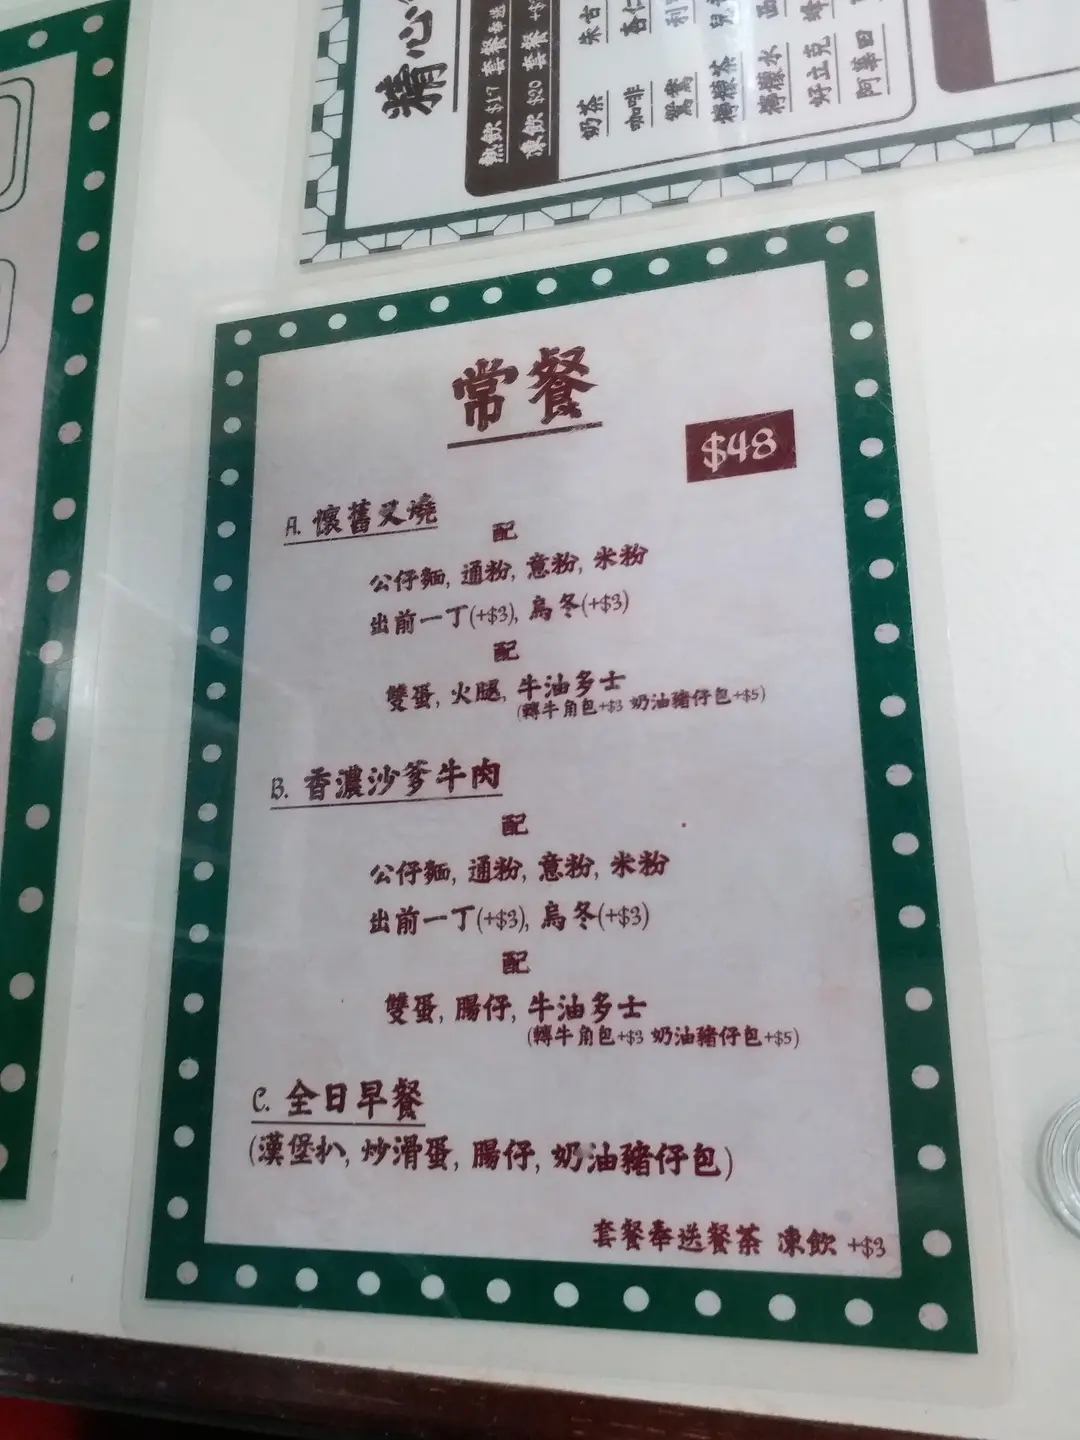 精心
熱飲 $17 套餐奉送
凍飲 $20 套餐 +$
奶茶
咖啡
鴛鴦
檸檬茶
檸檬水
好立克
阿華田
朱古
杏仁
常餐
$48
A. 懷舊叉燒
配
公仔麵, 通粉, 意粉, 米粉
出前一丁(+$3), 烏冬(+$3)
配
雙蛋, 火腿, 牛油多士
(轉牛角包+$3 奶油豬仔包+$5)
B. 香濃沙爹牛肉
配
公仔麵, 通粉, 意粉, 米粉
出前一丁(+$3), 烏冬(+$3)
配
雙蛋, 腸仔, 牛油多士
(轉牛角包+$3 奶油豬仔包+$5)
C. 全日早餐
(漢堡扒, 炒滑蛋, 腸仔, 奶油豬仔包)
套餐奉送餐茶 凍飲 +$3